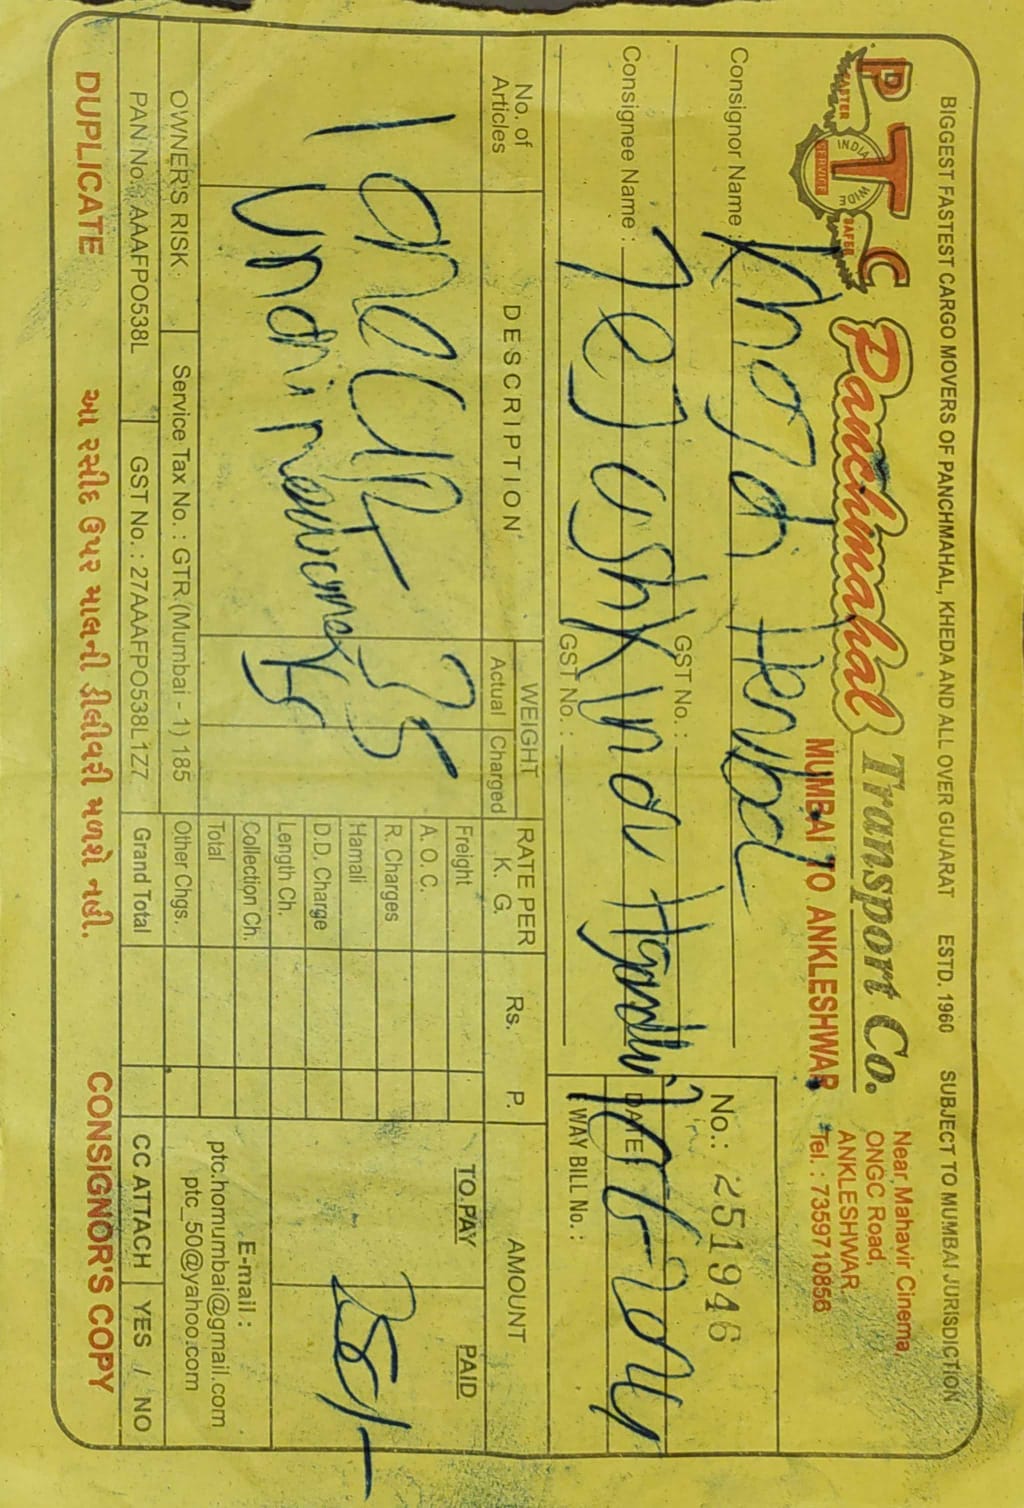 BIGGEST FASTEST CARGO MOVERS OF PANCHMAHAL, KHEDA AND ALL OVER GUJARAT ESTD. 1960 SUBJECT TO MUMBAI JURISDICTION
PTC
FASTER SAFER
INDIA WIDE
SERVICE
Panchmahal Transport Co.
MUMBAI TO ANKLESHWAR
Near Mahavir Cinema,
ONGC Road,
ANKLESHWAR.
Tel.: 7359710856
Consignor Name :
GST No. :
No.: 251946
Consignee Name : Tejush
GST No. :
DATE
WAY BILL No. :
No. of Articles
DESCRIPTION
WEIGHT
Actual Charged
RATE PER K. G.
Rs. P.
AMOUNT
TO.PAY PAID
1
35
Kg
25/-
Freight
A. O. C.
R. Charges
Hamali
D.D. Charge
Length Ch.
Collection Ch.
Total
Other Chgs.
Grand Total
E-mail :
ptc.homumbai@gmail.com
ptc_50@yahoo.com
OWNER'S RISK
Service Tax No. : GTR (Mumbai - 1) 185
PAN No. : AAAFPO538L
GST No. : 27AAAFPO538L1Z7
CC ATTACH YES / NO
DUPLICATE
આ રસીદ ઉપર માલની ડીલીવરી મળશે નહી.
CONSIGNOR'S COPY